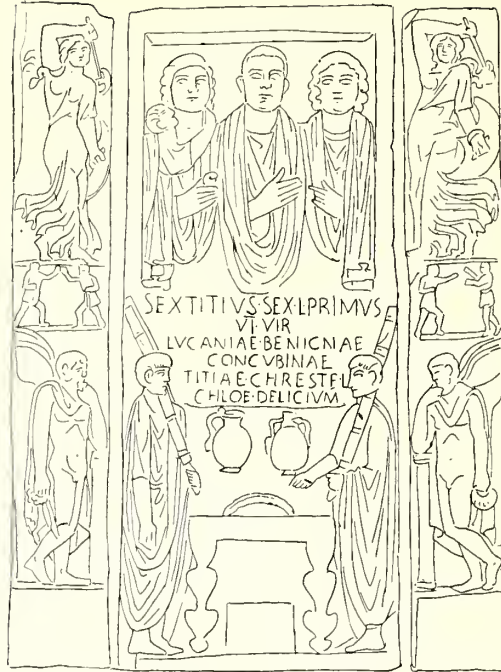 SEX·TITIVS·SEX·L·PRIMVS
VI·VIR
LVCANIAE·BENIGNAE
CONCVBINAE
TITIAE·CHRESTE·L
CHLOE·DELICIVM